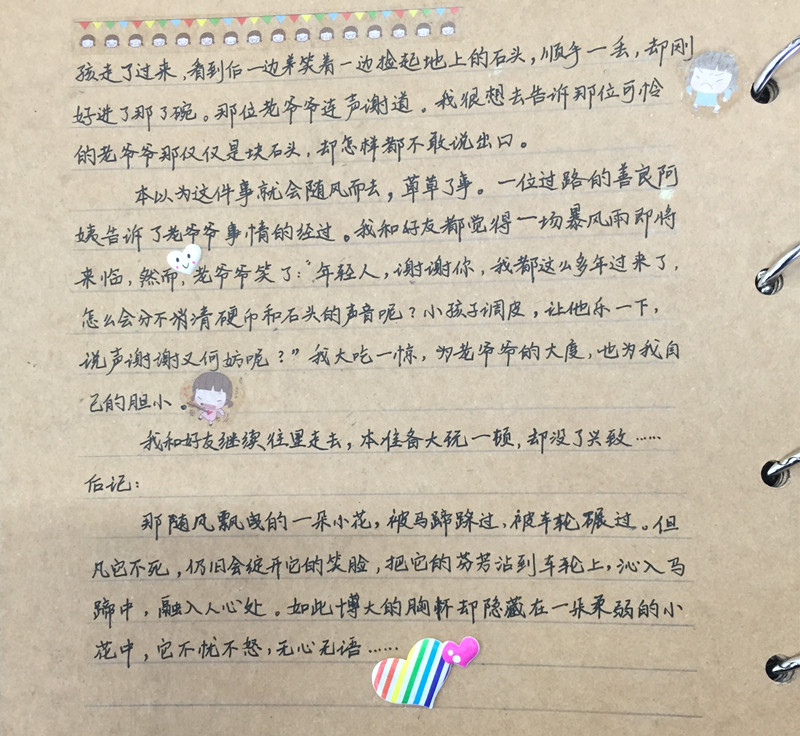 孩走了过来，看到后一边笑着一边捡起地上的石头，顺手一丢，却刚
好进了那了碗。那位老爷爷连声谢道。我很想去告诉那位可怜
的老爷爷那仅仅是块石头，却怎样都不敢说出口。
本以为这件事就会随风而去，草草了事。一位过路的善良阿
姨告诉了老爷爷事情的经过。我和好友都觉得一场暴风雨即将
来临，然而，老爷爷笑了：“年轻人，谢谢你，我都这么多年过来了，
怎么会分不消清硬币和石头的声音呢？小孩子调皮，让他乐一下，
说声谢谢又何妨呢？”我大吃一惊，为老爷爷的大度，也为我自
己的胆小。
我和好友继续往里走去，本准备大玩一顿，却没了兴致……
后记：
那随风飘曳的一朵小花，被马蹄踩过，被车轮碾过。但
凡它不死，仍旧会绽开它的笑脸，把它的芬芳沾到车轮上，沁入马
蹄中，融入人心处。如此博大的胸怀却隐藏在一朵柔弱的小
花中，它不忧不怒，无心无语……